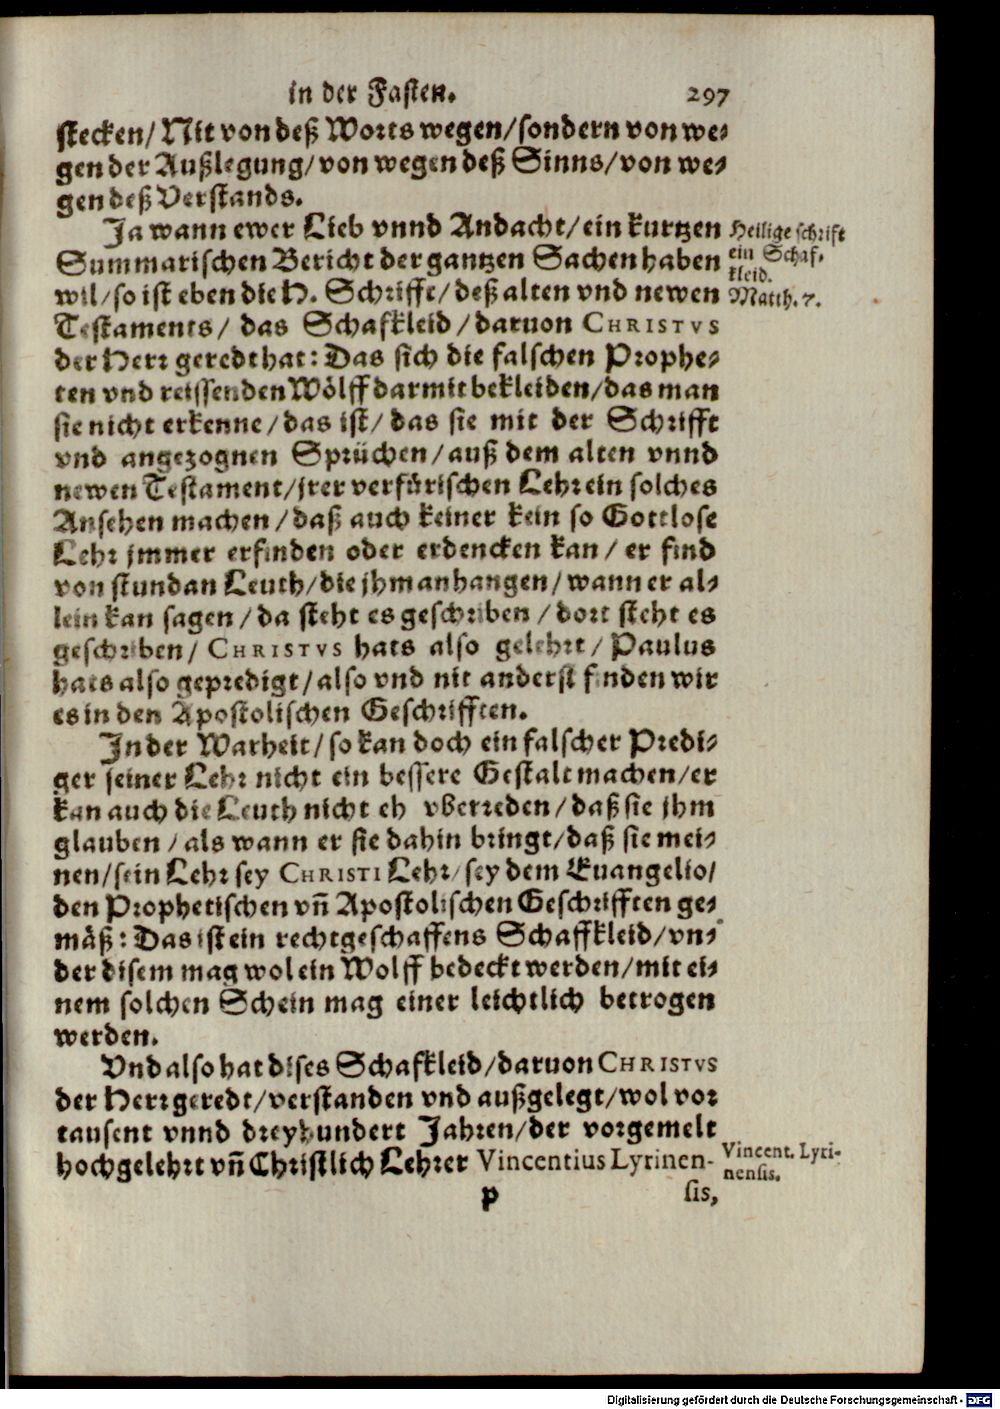 in der Fasten. 297
stecken/Nit von deß Worts wegen/sondern von we⸗
gen der Außlegung/von wegen deß Sinns/von we⸗
gen deß Verstands.
Ja wann ewer Lieb vnnd Andacht/ein kurtzen
Summarischen Bericht der gantzen Sachen haben
wil/so ist eben die H. Schrifft/deß alten vnd newen
Testaments/ das Schafkleid/daruon CHRISTVS
der Herr geredt hat: Das sich die falschen Prophe⸗
ten vnd reissenden Wölff darmit bekleiden/das man
sie nicht erkenne/das ist/das sie mit der Schrifft
vnd angezognen Sprüchen/auß dem alten vnnd
newen Testament/jrer verfürischen Lehr ein solches
Ansehen machen/daß auch keiner kein so Gottlose
Lehr jmmer erfinden oder erdencken kan/ er find
von stundan Leuth/die jhm anhangen/wann er al⸗
lein kan sagen/da steht es geschriben/dort steht es
geschriben/ CHRISTVS hats also gelehrt/Paulus
hats also gepredigt/also vnd nit anderst finden wir
es in den Apostolischen Geschrifften.
In der Warheit/so kan doch ein falscher Predi⸗
ger seiner Lehr nicht ein bessere Gestalt machen/er
kan auch die Leuth nicht eh vberreden/daß sie jhm
glauben/als wann er sie dahin bringt/daß sie mei⸗
nen/sein Lehr sey CHRISTI Lehr/sey dem Euangelio/
den Prophetischen vñ Apostolischen Geschrifften ge⸗
mäß: Das ist ein rechtgeschaffens Schaffkleid/vn⸗
der disem mag wol ein Wolff bedeckt werden/mit ei⸗
nem solchen Schein mag einer leichtlich betrogen
werden.
Vnd also hat dises Schafkleid/daruon CHRISTVS
der Herr geredt/verstanden vnd außgelegt/wol vor
tausent vnnd dreyhundert Jahren/der vorgemelt
hochgelehrt vñ Christlich Lehrer Vincentius Lyrinen-
p sis,
Heilige schrift
ein Schaf⸗
kleid.
Matth. 7.
Vincent. Lyri-
nensis.
Digitalisierung gefördert durch die Deutsche Forschungsgemeinschaft - DFG